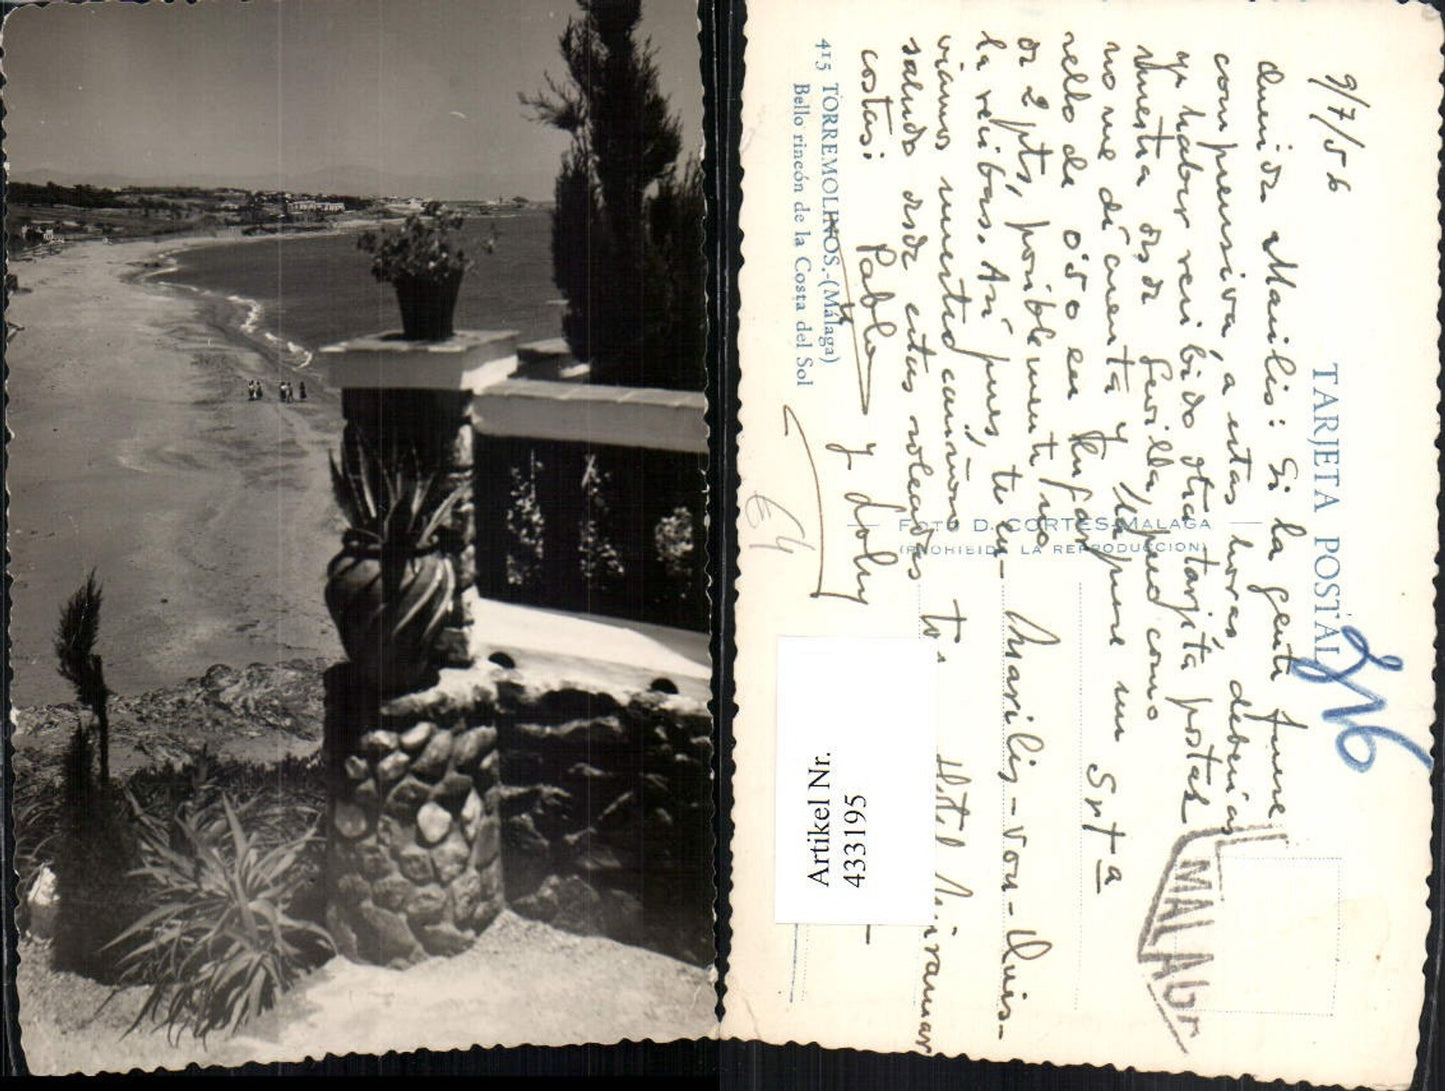 415 TORREMOLINOS.-(Málaga)
Bello rincón de la Costa del Sol
TARJETA POSTAL
FOTO D. CORTES-MALAGA
(PROHIBIDA LA REPRODUCCION)
9/7/56
Querida Marilis: Si la gente fuese
comprensiva, a estas horas deberías
haber recibido otra tarjeta postal
nuestra desde Sevilla, pues como
no me dí cuenta y la puse un
sello de 0'50 en lugar
de 2 pts, posiblemente no
la recibas. Así pues, te en-
viamos nuestro cariñoso
saludo desde estas soleadas
costas:
Pablo y Loly
Srta
Marilis-von-
Hotel Miramar
MALAGA
Artikel Nr.
433195